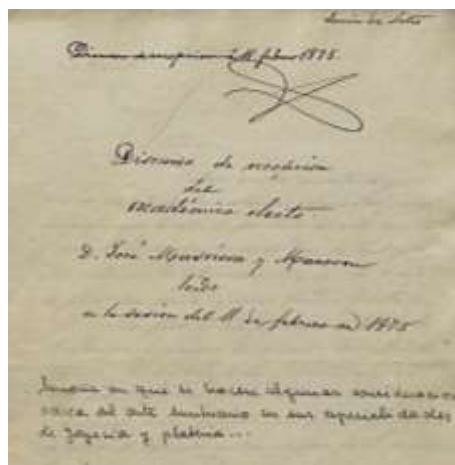 Discurso de recepción
del
académico electo
D. José Masriera y Manovens
leído
en la sesión del 11 de febrero de 1875
Memoria en que se hacen algunas consideraciones
acerca al arte suntuario en sus especialidades
de joyería y platería...